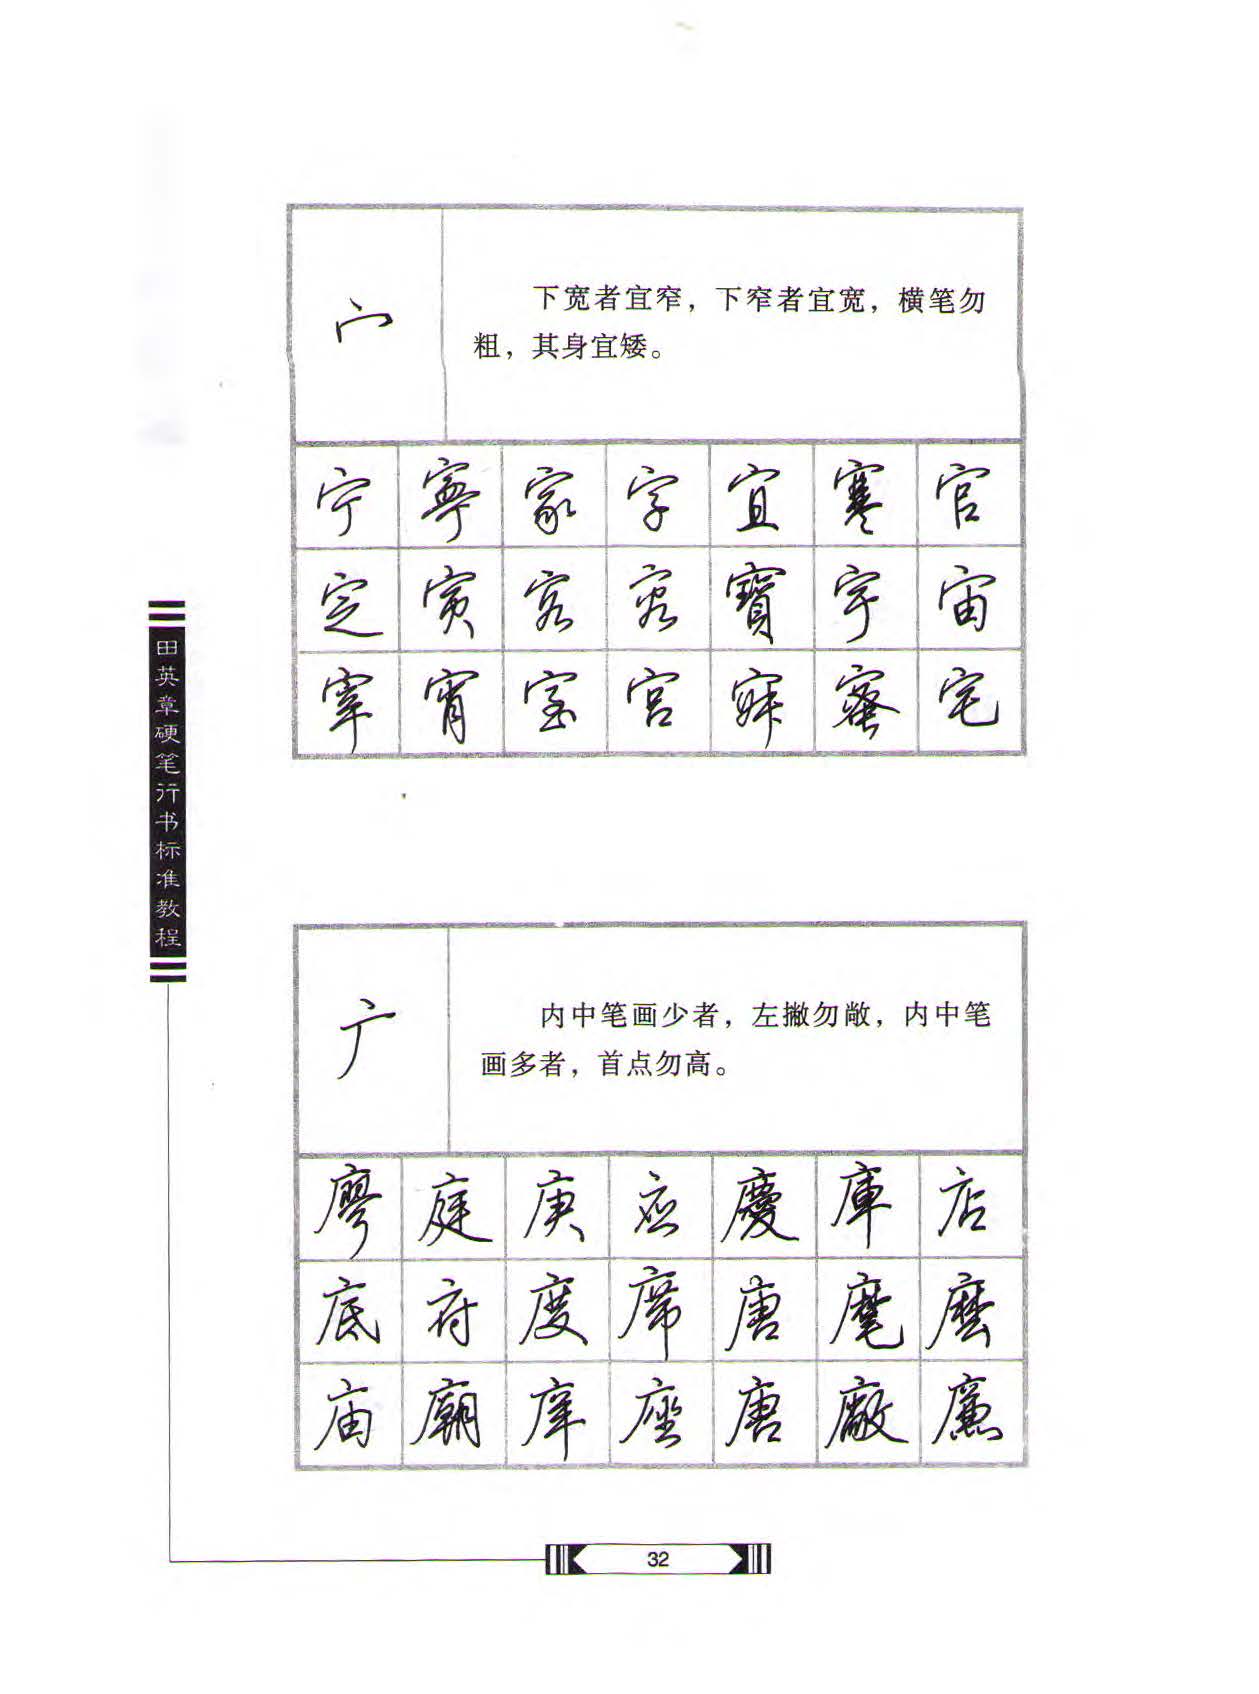 宀
下宽者宜窄，下窄者宜宽，横笔勿
粗，其身宜矮。
宁 寧 家 字 宜 寒 官
定 寅 客 容 寶 宇 宙
宰 宵 室 宫 寐 蜜 宅
田英章硬笔行书标准教程
广
内中笔画少者，左撇勿敞，内中笔
画多者，首点勿高。
廖 庭 庚 应 慶 庫 店
底 府 度 席 唐 麾 磨
庙 廟 庠 座 唐 廠 廉
32